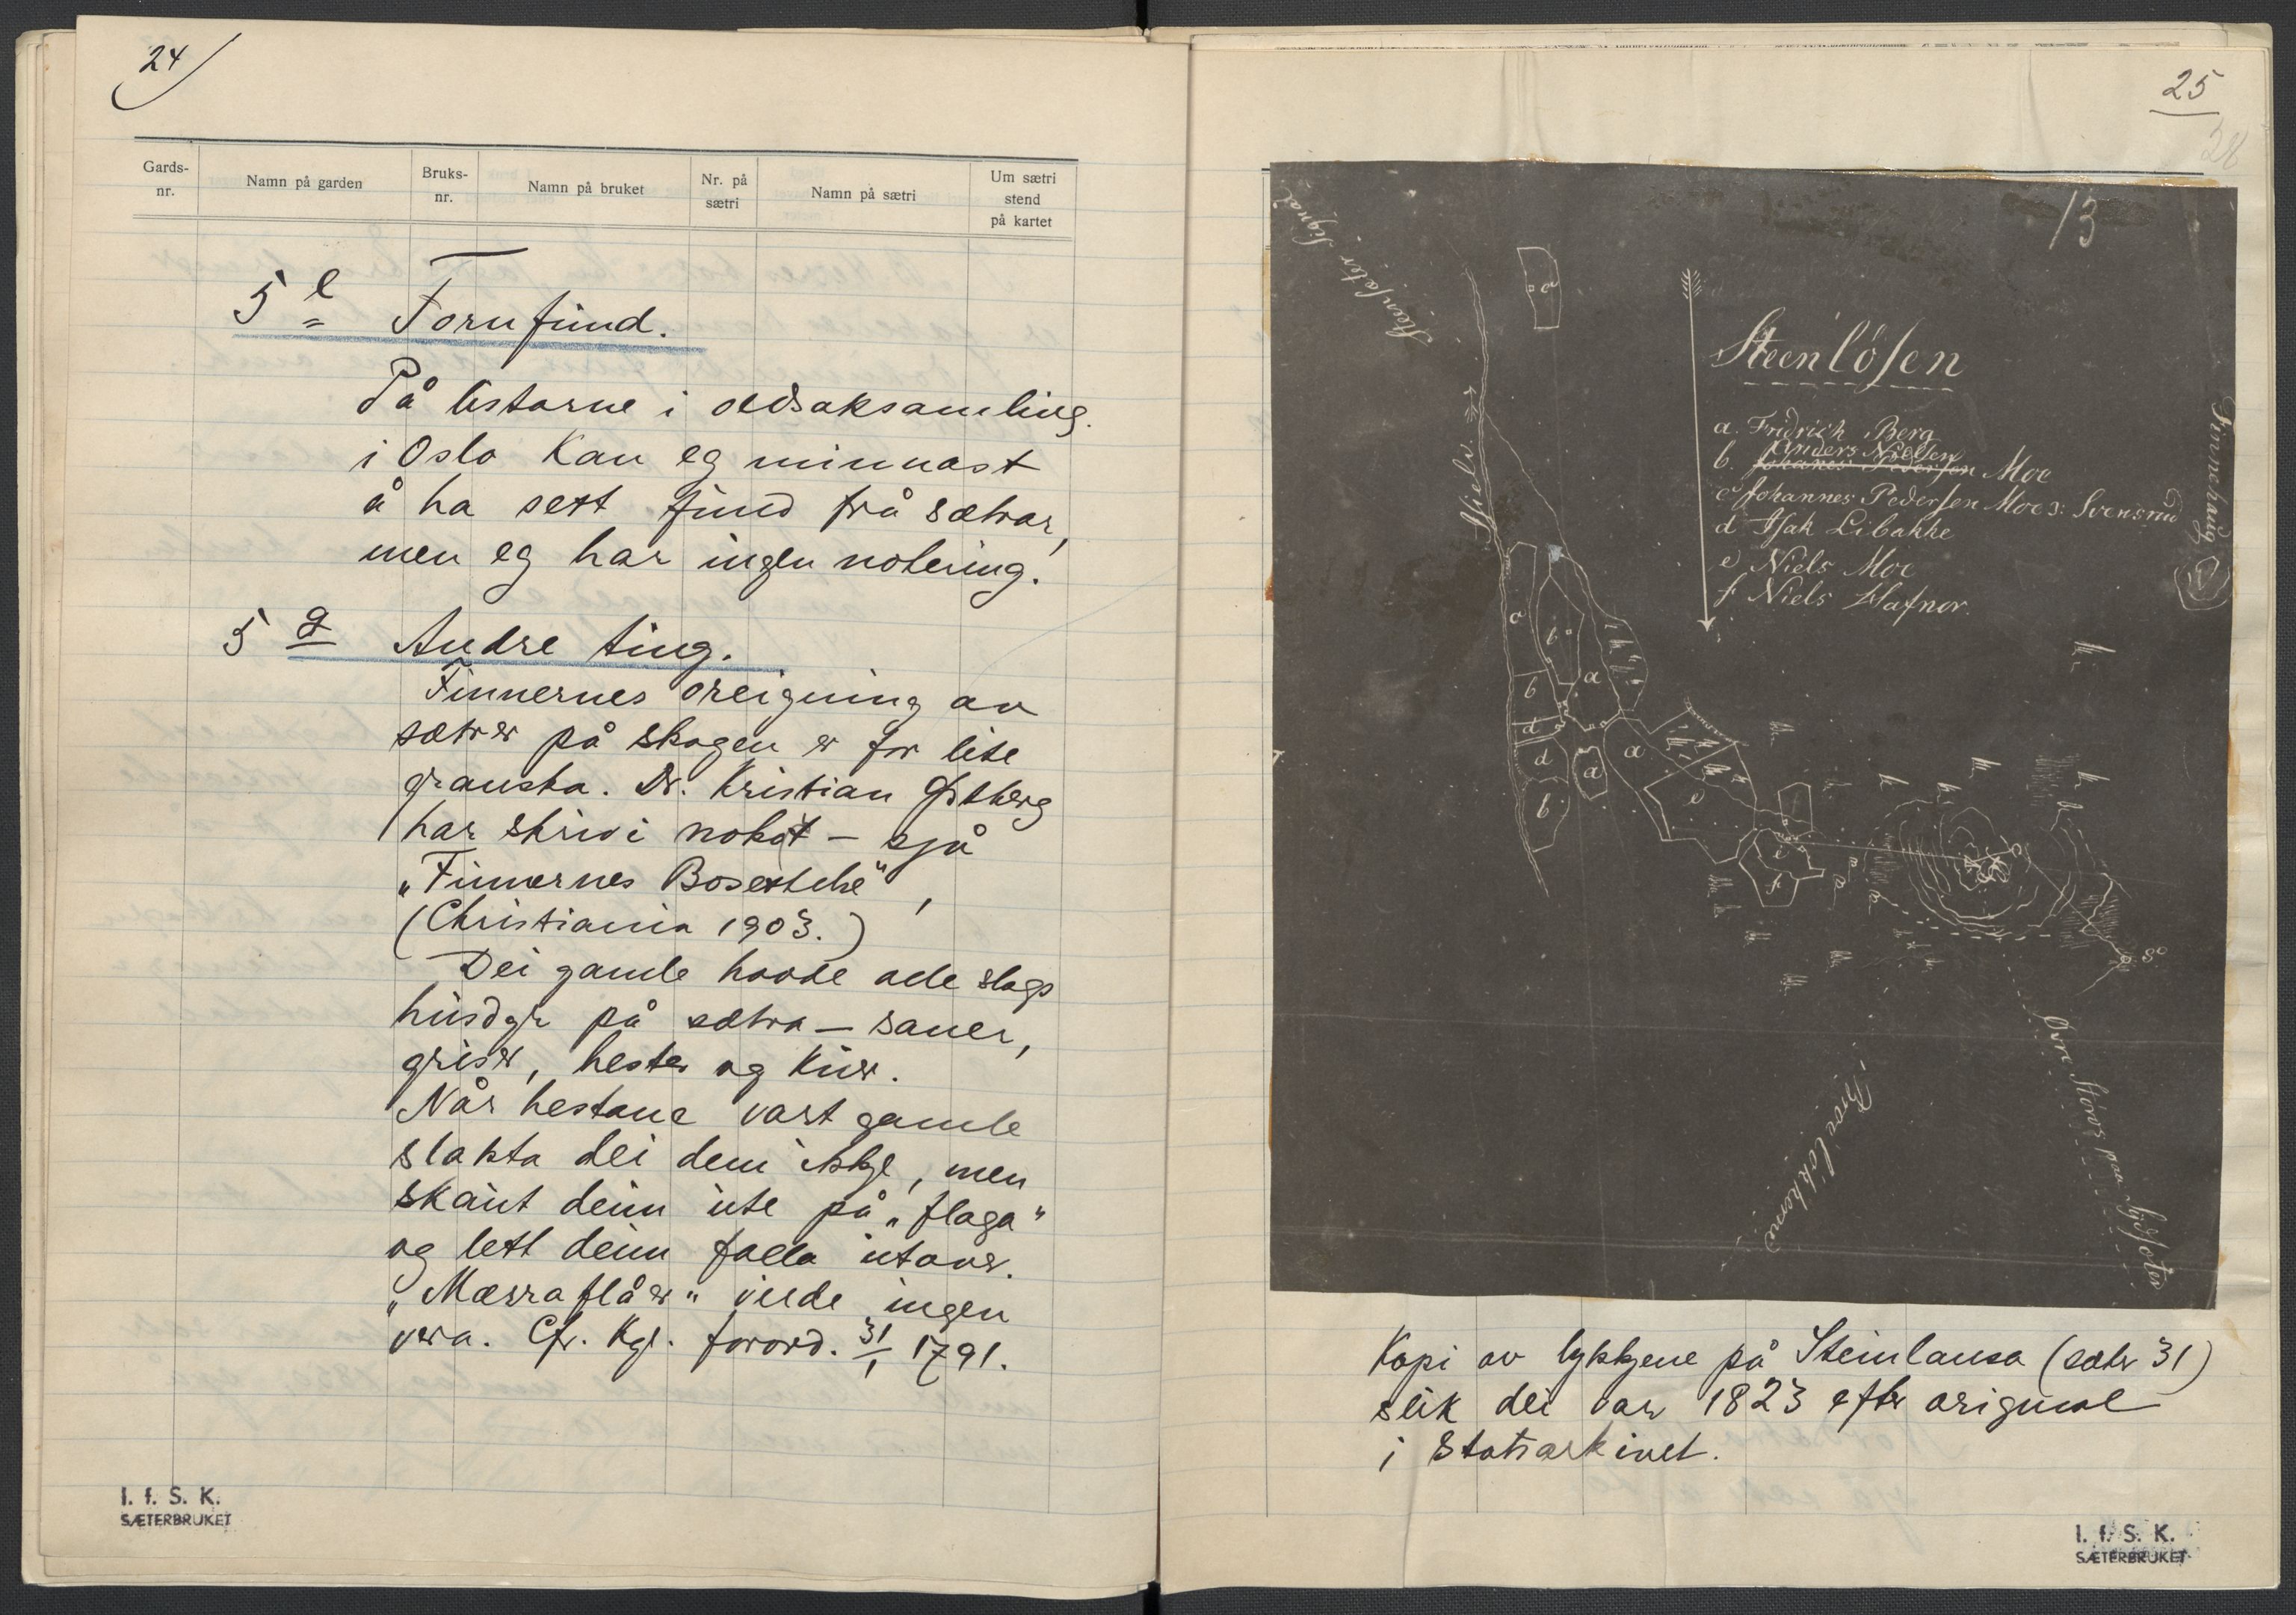 24
Gards-
nr.
Namn på garden
Bruks-
nr.
Namn på bruket
Nr. på
sætri
Namn på sætri
Um sætri
stend
på kartet
5 e Fornfund.
På listarne i oldsaksamling.
i Oslo kan eg minnast
å ha sett fund frå sætrar,
men eg har ingen notering.
5 g Andre ting.
Finnernes oreigning av
sætrer på skogen er for lite
granska. Dr. Kristian Østberg
har skrivi nokot – sjå
„Finnernes Bosettelse“,
(Christiania 1903.)
Dei gamle havde alle slags
husdyr på sætra – sauer,
griser, hester og kuer.
Når hestane vart gamle
slakta dei dem ikkje, men
skaut deim ute på „flaga“
og lett deim falla utover.
„Mærraflåer“ vilde ingen
vera. Cfr. Kgl. forord. 31/1 1791.
I. f. S. K.
SÆTERBRUKET
25
28
13
Steensæter Signal
Steenlösen
a. Fridrich Berg
Anders Nielsen
b. Johanes Pedersen Moe
c Johannes Pedersen Moe ɔ: Svensrud
d Isak Libakke
e Niels Moe
f Niels Hafnor.
Finnehaug
Kopi av lykkjene på Steinlausa (sæter 31)
slik dei var 1823 efter original
i Statsarkivet.
I. f. S. K.
SÆTERBRUKET